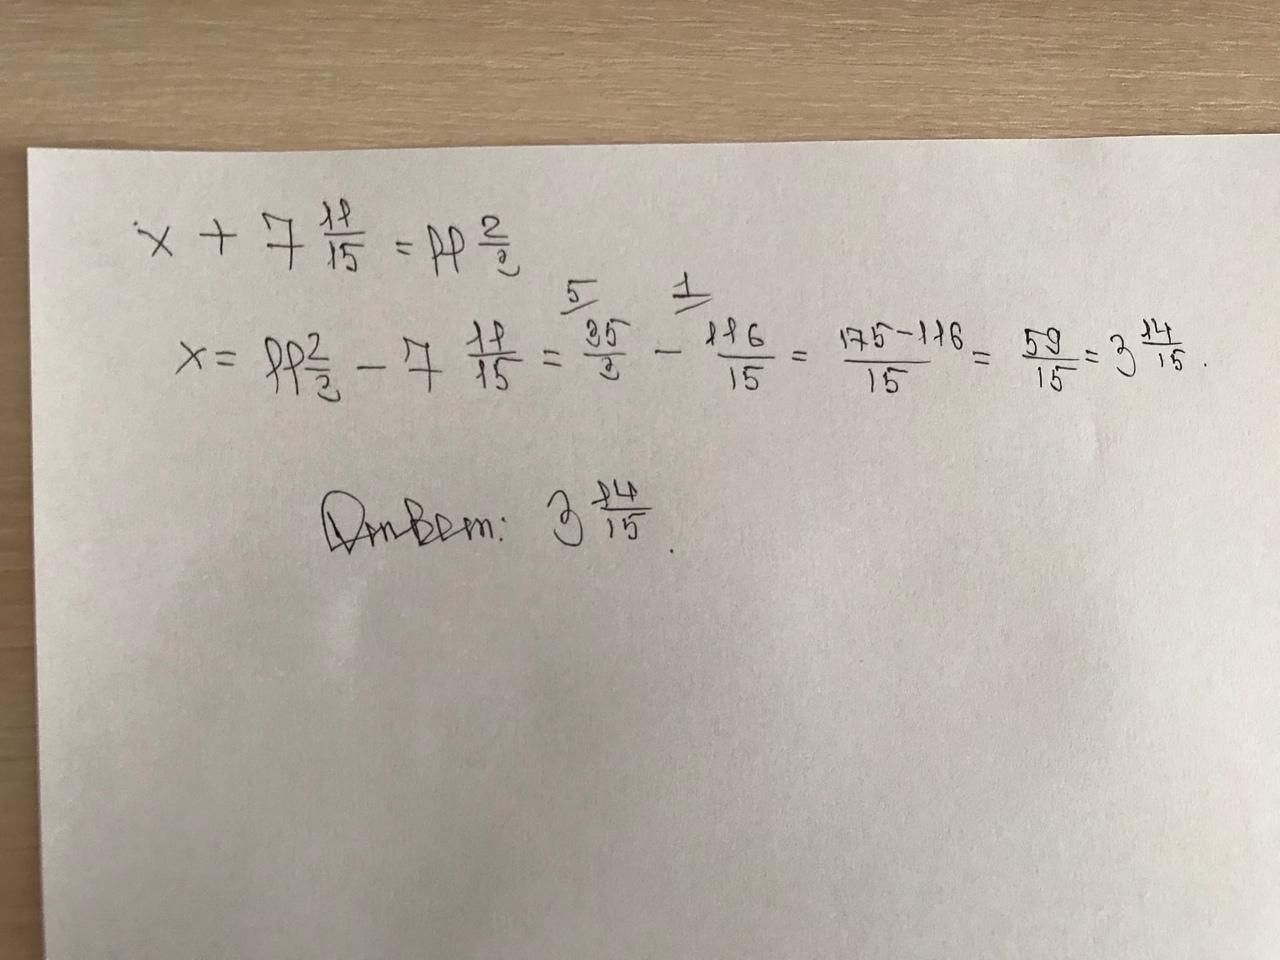 x + 7 11/15 = 11 2/3
x = 11 2/3 - 7 11/15 = 35/3 (5) - 116/15 (1) = 175-116/15 = 59/15 = 3 14/15.
Ответ: 3 14/15.